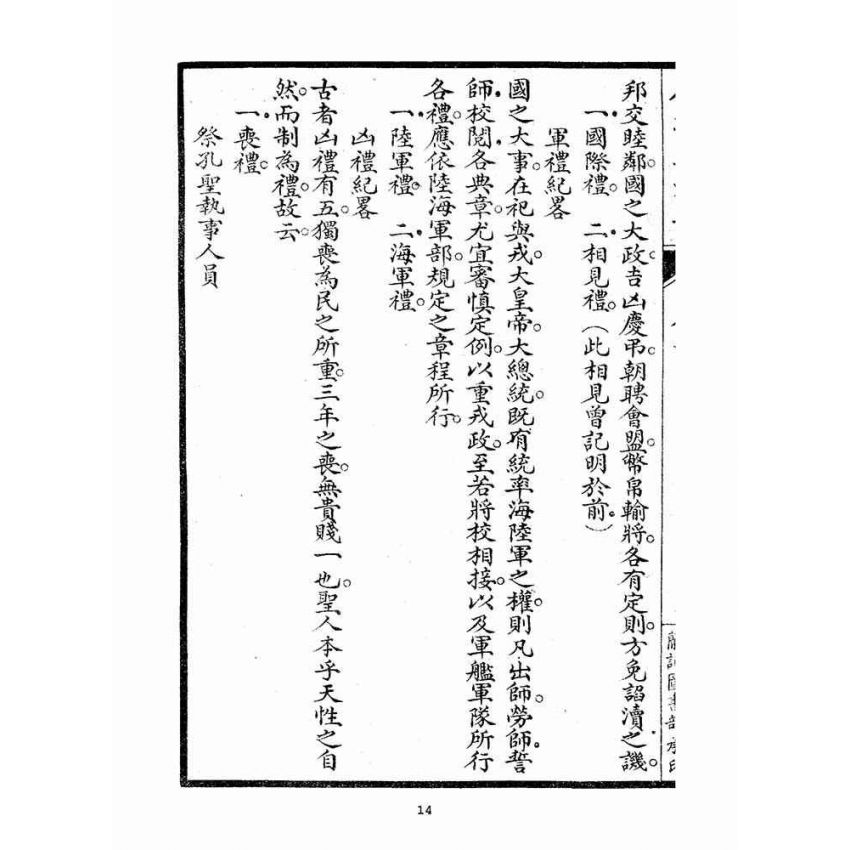 邦交睦鄰。國之大政。吉凶慶弔。朝聘會盟。幣帛輸將。各有定則。方免諂瀆之譏。
一。國際禮。 二。相見禮。(此相見曾記明於前。)
軍禮紀畧
國之大事。在祀與戎。大皇帝。大總統。既有統率海陸軍之權。則凡出師。勞師。誓
師。校閱。各典章。尤宜審慎定例。以重戎政。至若將校相接。以及軍艦軍隊所行
各禮。應依陸海軍部。規定之章程所行。
一。陸軍禮。 二。海軍禮。
凶禮紀畧
古者凶禮有五。獨喪為民之所重。三年之喪。無貴賤一也。聖人本乎天性之自
然。而制為禮。故云。
一。喪禮。
祭孔聖執事人員
14